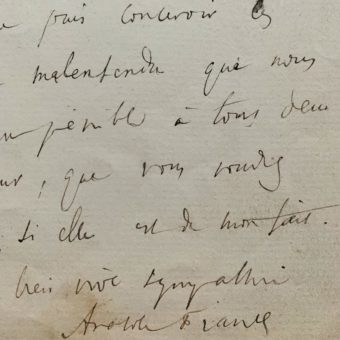 puis concevoir
malentendu que nous
pénible à tous deux
, que vous voudrez
si elle est de mon fait.
bien vive sympathie
Anatole France